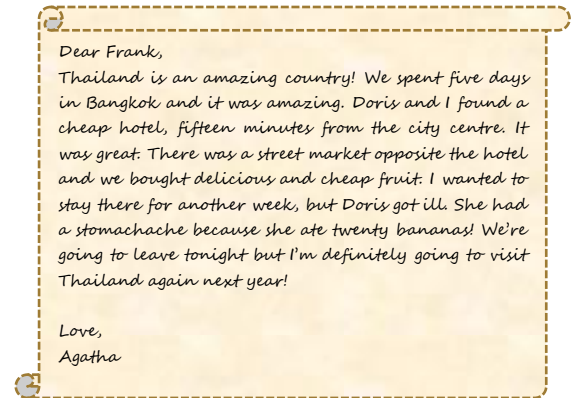 Dear Frank,
Thailand is an amazing country! We spent five days
in Bangkok and it was amazing. Doris and I found a
cheap hotel, fifteen minutes from the city centre. It
was great. There was a street market opposite the hotel
and we bought delicious and cheap fruit. I wanted to
stay there for another week, but Doris got ill. She had
a stomachache because she ate twenty bananas! We're
going to leave tonight but I'm definitely going to visit
Thailand again next year!
Love,
Agatha